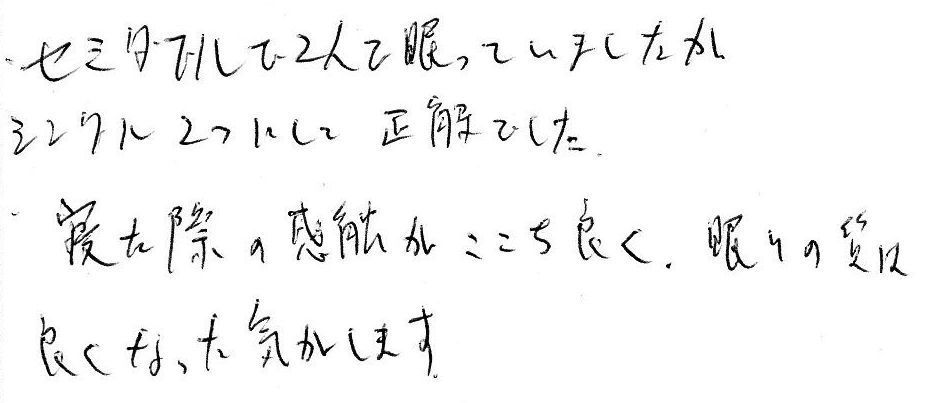 ・セミダブルで2人で眠っていましたが
シングル2つにして正解でした。
・寝た際の感触がここち良く、眠りの質は
良くなった気がします。